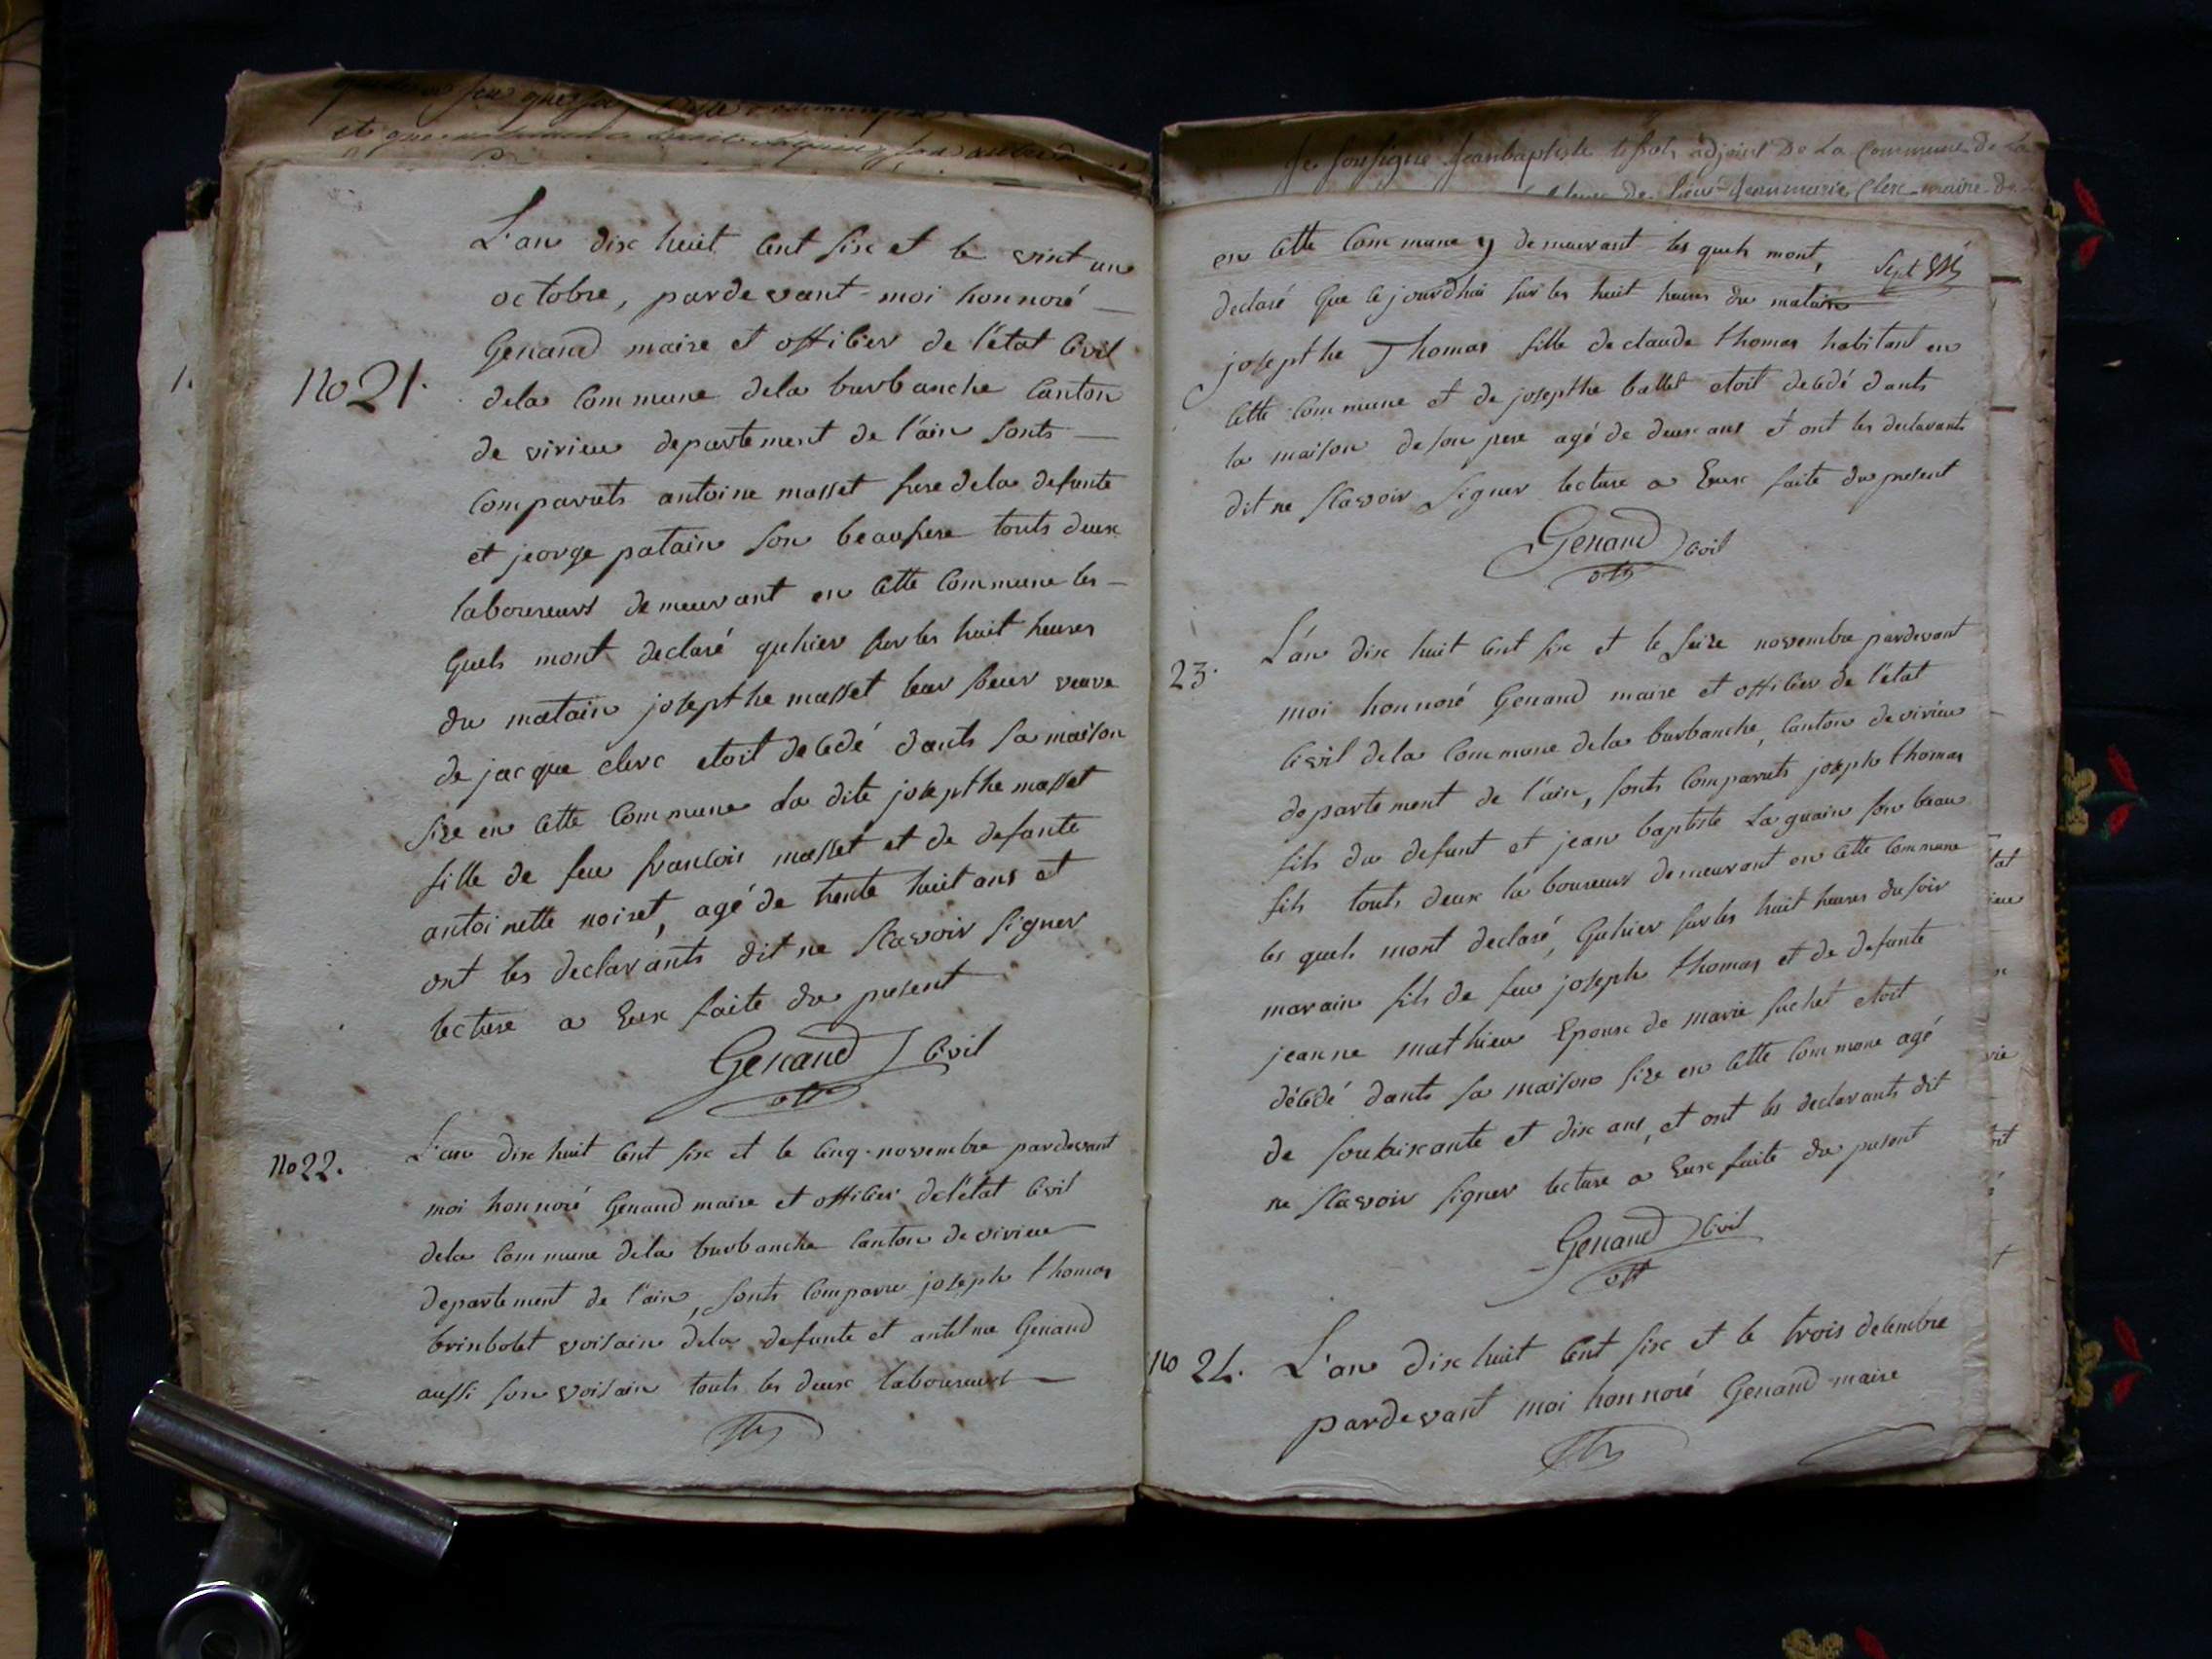 L'an dix huit cent six et le vint un
octobre, pardevant moi honnoré
No 21.
Genand maire et officier de l'état civil
dela commune dela burbanche canton
de virieu departement de l'ain sonts
comparuts antoine masset frere dela defunte
et jeorge patain son beaufrere touts deux
laboureurs demeurant en cette commune les
quels mont declaré quhier sur les huit heures
du matain josepthe masset leur seur veuve
de jacque clerc etoit decédé dants sa maison
size en cette commune la dite josepthe masset
fille de feu francois masset et de defunte
antoinette noiret, agé de trente huit ans et
ont les declarants dit ne scavoir signer
lecture a Eux faite du present
Genand off civil
no 22.
L'an dix huit cent six et le cinq novembre pardevant
moi honnoré Genand maire et officier de l'état civil
dela commune dela burbanche canton de virieu
departement de l'ain, sonts comparu joseph thomas
brinbolet voisain dela defunte et antelme Genand
aussi son voisain touts les deux laboureurs
Je soussigné Jeanbaptiste adjoint De La Commune de La
de sieur Jeanmarie Clerc maire de
en cette commune y demeurant les quels mont,
declaré que cejourdhui sur les huit heures du matain
josepthe Thomas fille de claude thomas habitant en
cette commune et de josepthe ballet etoit decédé dants
la maison de son pere agé de deux ans et ont les declarants
dit ne scavoir signer lecture a Eux faite du present
Genand off civil
23.
L'an dix huit cent six et le seize novembre pardevant
moi honnoré Genand maire et officier de l'état
civil dela commune dela burbanche, canton de virieu
departement de l'ain, sonts comparuts joseph thomas
fils du defunt et jean baptiste Laguain son beau
fils touts deux laboureurs demeurant en cette commune
les quels mont declaré, quhier sur les huit heures du soir
marain fils de feu joseph thomas et de defunte
jeanne mathieu Epoux de marie suchet etoit
décédé dants sa maison size en cette commune agé
de soubixante et dix ans, et ont les declarants dit
ne scavoir signer lecture a Eux faite du present
Genand off civil
no 24.
L'an dix huit cent six et le trois decembre
pardevant moi honnoré Genand maire